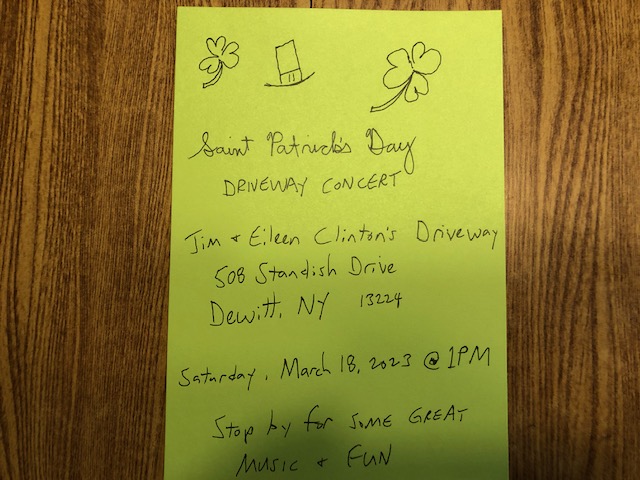 Saint Patrick's Day
DRIVEWAY CONCERT
Jim + Eileen Clinton's Driveway
508 Standish Drive
Dewitt, NY 13224
Saturday, March 18, 2023 @ 1PM
Stop by for SOME GREAT
MUSIC + FUN